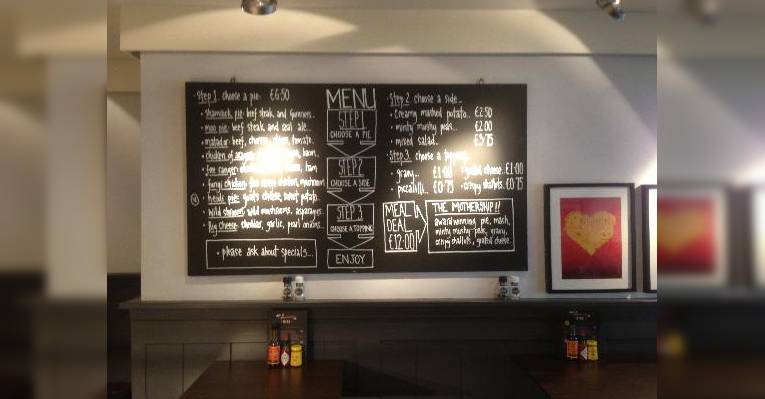 Step 1. choose a pie. £6.50
• Shamrock pie: beef steak, and Guinness...
• moo pie: beef steak, and real ale...
• matador: beef,
• chicken of
• free ranger:
• fungi chicken: free range chicken, mushroom
• heidi pie: goats cheese, sweet potato..
• Wild shroom: wild mushrooms, asparagus..
cheese: cheddar, garlic, onions...
• please ask about specials...
MENU
STEP 1
CHOOSE A PIE
STEP 2
CHOOSE A SIDE
STEP 3
CHOOSE A TOPPING
ENJOY
Step 2. choose a side...
• Creamy mashed potato.. £2.50
• minty mushy peas... £2.00
• mixed salad...
Step 3. choose a topping
• gravy... £1.00
• piccalilli... £0.75
• grated cheese. £1.00
• crispy shallots. £0.75
MEAL
DEAL
£12.00
THE MOTHERSHIP!!
award winning, pie, mash,
minty mushy peas, gravy,
crispy shallots, grated cheese